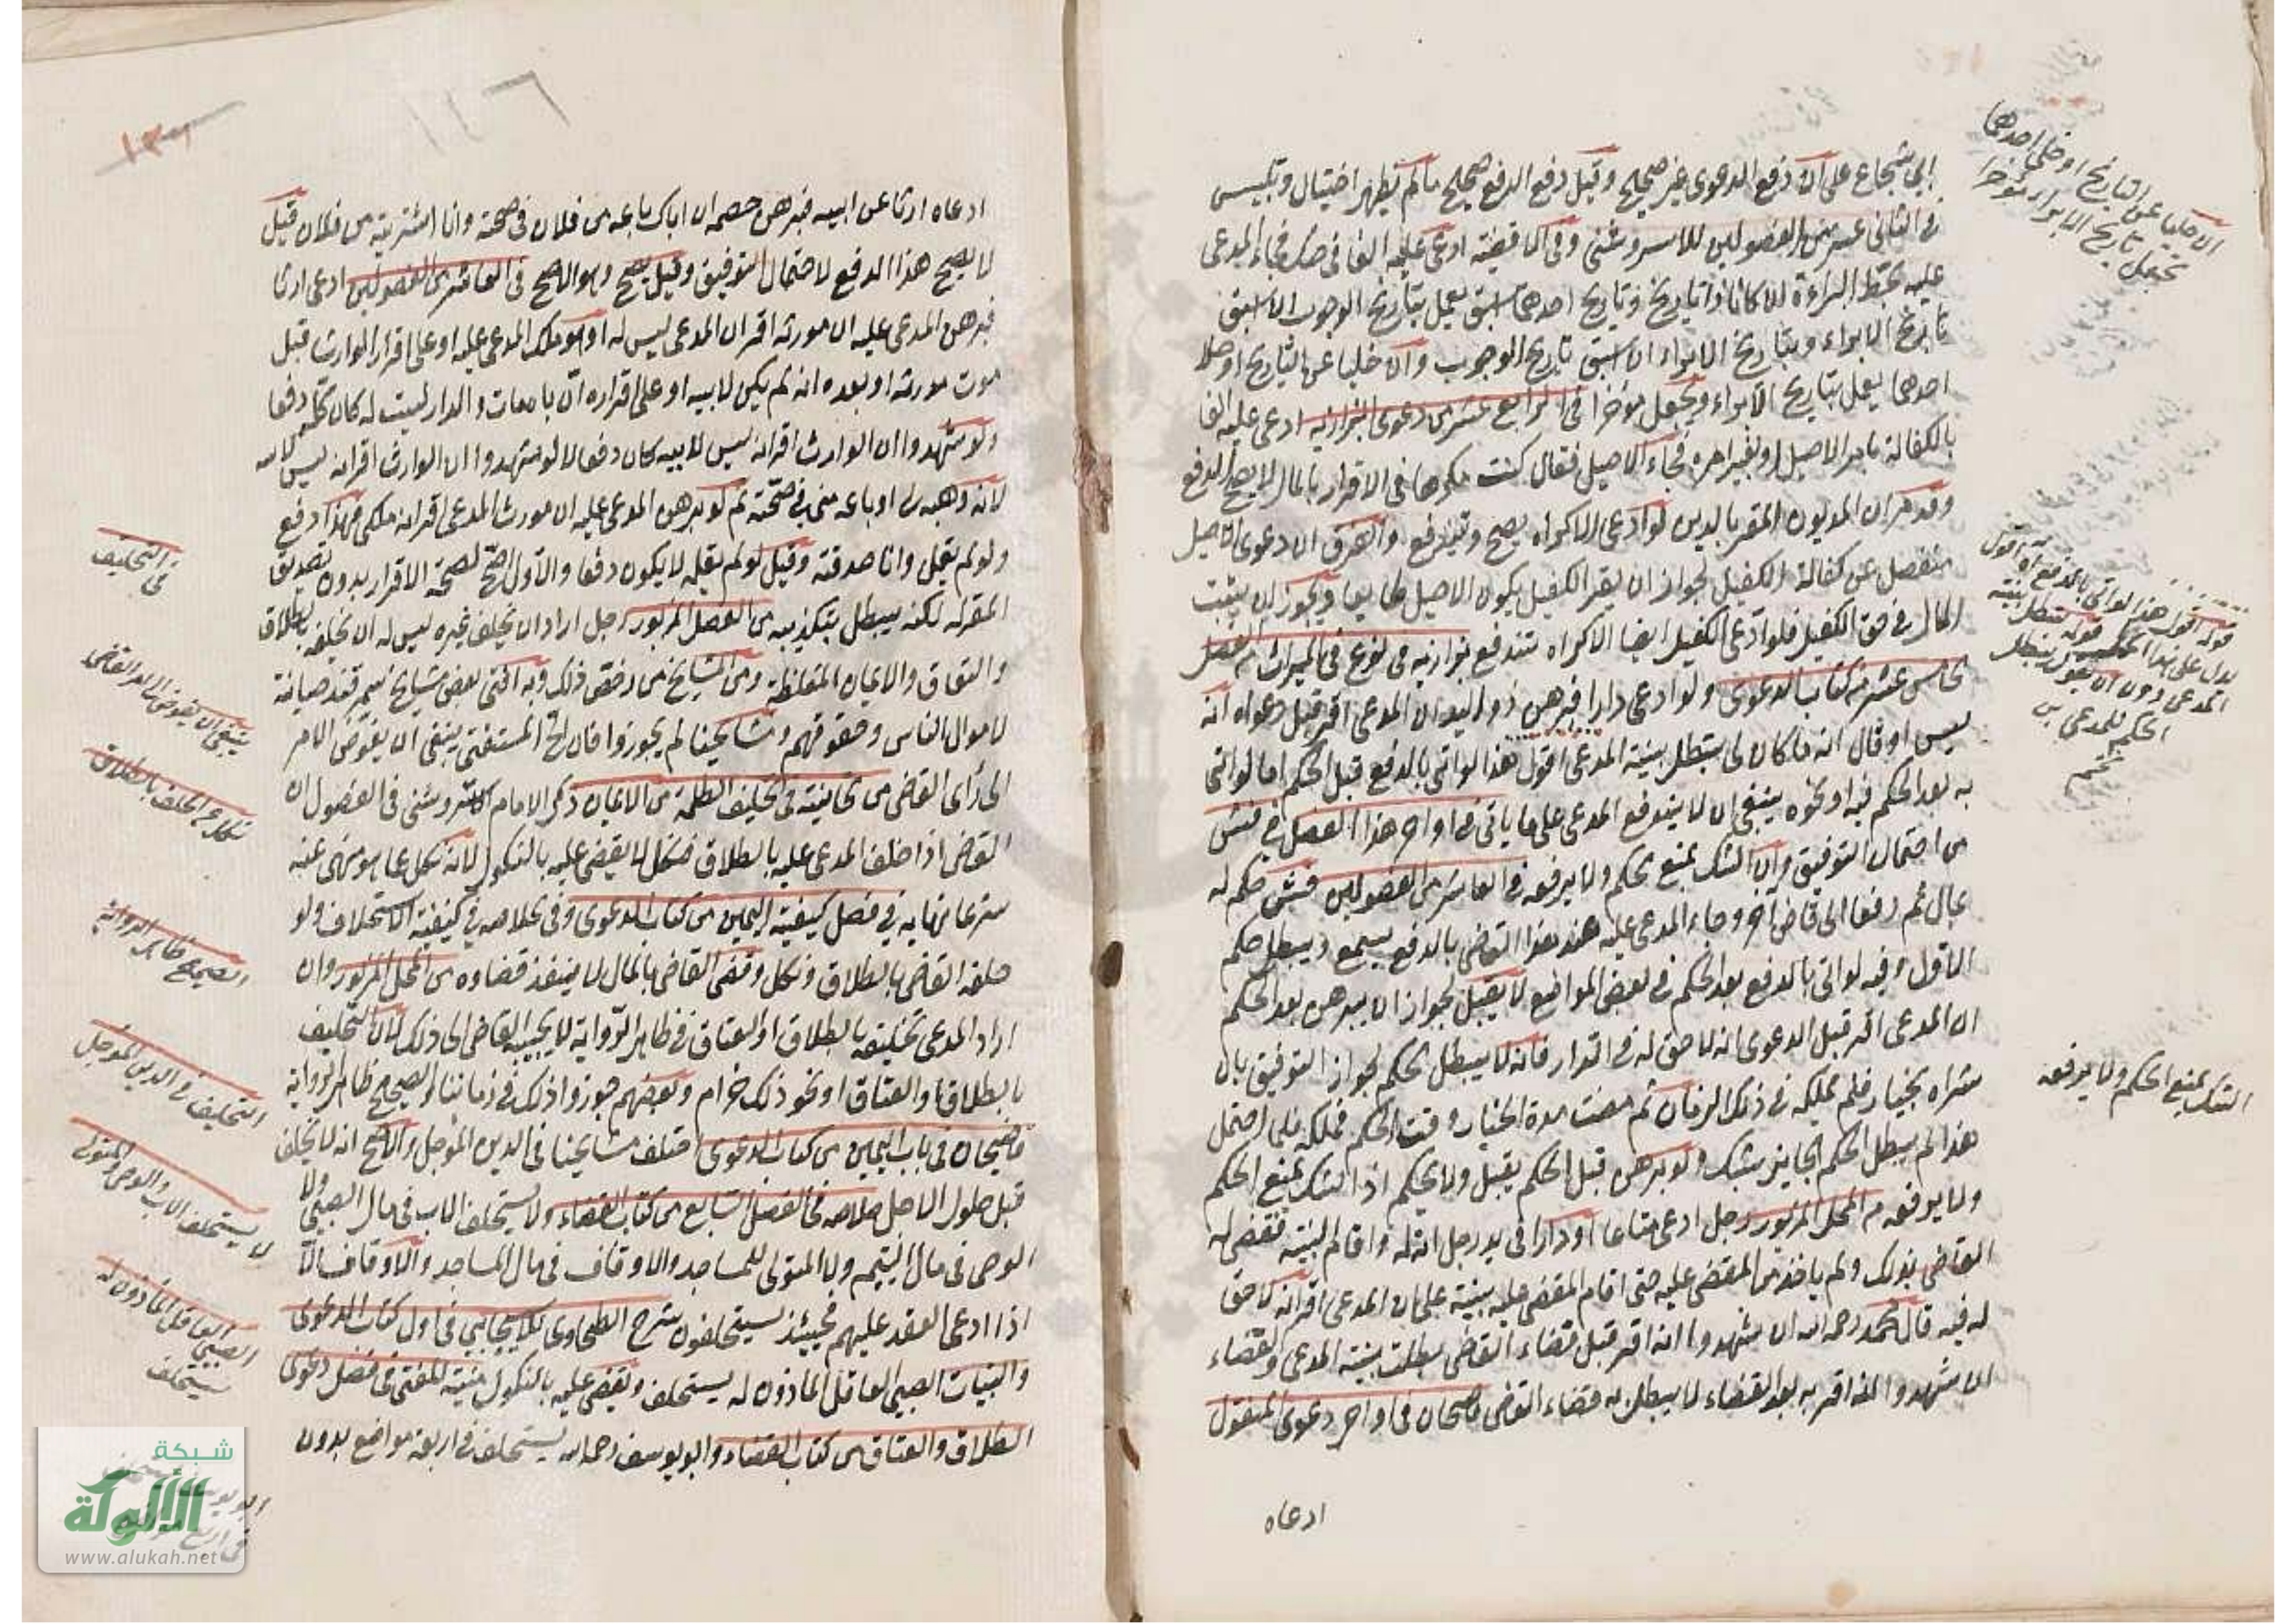 ابي شجاع على ان دفع الدعوى غير صحيح وقيل دفع الدفع صحيح ما لم يظهر احتيال وتلبيس
في الثاني عشر من الفصولين للاسروشني وفي ادعى عليه الفا في صك فجاء المدعى
عليه بخط البراءة ان كانا ذا تاريخ وتاريخ احدهما اسبق يعمل بتاريخ الوجوب ان سبق
تاريخ الابراء وبتاريخ الابراء ان سبق تاريخ الوجوب وان خليا عن التاريخ او خلا
احدهما يعمل بتاريخ الابراء ويجعل مؤخرا في الرابع عشر من دعوى البزازية ادعى عليه الفا
بالكفالة بامر الاصيل او بغير امره فجاء الاصيل فقال كنت مكرها في الاقرار بالمال لا يصح الدفع
وقد مر ان المديون المقر بالدين لو ادعى الاكراه يصح ويندفع والفرق ان دعوى الاصيل
منفصل عن كفالة الكفيل لجواز ان يقر الكفيل بكون الاصيل طايعا ويجوز ان يثبت
المال في حق الكفيل فلو ادعى الكفيل ايضا الاكراه تندفع بزازية في نوع في الميراث من الفصل
الخامس عشر من كتاب الدعوى ولو ادعى دارا فبرهن ذو اليد ان المدعى اقر قبل دعواه انه
ليس او قال انه ما كان لي يبطل بينة المدعى اقول هذا لو اتى بالدفع قبل الحكم اما لو اتى
به بعد الحكم فيه او نحوه ينبغي ان لا يندفع المدعى على ما ياتي في اواخر هذا الفصل في فش
من احتمال التوفيق وان الشك يمنع الحكم ولا يرفعه في العاشر من الفصولين فش حكم له
بمال ثم رفعا الى قاض آخر وجاء المدعى عليه عند هذا القاضي بالدفع يسمع ويبطل حكم
الاول وفيه لو اتى بالدفع بعد الحكم في بعض المواضع لا يقبل لجواز ان يبرهن بعد الحكم
ان المدعى اقر قبل الدعوى انه لا حق له في الدار فانه لا يبطل الحكم لجواز التوفيق بان
شراه بخيار فلم يملكه في ذلك الزمان ثم مضت مدة الخيار وقت الحكم فملكه فلما احتمل
هذا لم يبطل الحكم الجايز بشك ولو برهن قبل الحكم يقبل ولا يحكم اذ الشك يمنع الحكم
ولا يرفعه من المحل المزبور رجل ادعى متاعا او دارا في يد رجل انه له واقام البينة فقضى له
القاضي بذلك ولم ياخذ من المقضي عليه حتى اقام المقضي عليه بينة على ان المدعى اقر انه لا حق
له فيه قال محمد رحمه الله ان شهدوا انه اقر قبل قضاء القاضي بطلت بينة المدعى والقضاء
ان شهدوا انه اقر به بعد القضاء لا يبطل به قضاء القاضي قاضيخان في اواخر دعوى المنقول
ادعاه
ان خليا عن التاريخ او خلا احدهما
يجعل تاريخ الابراء مؤخرا
قوله اقول هذا لو اتى بالدفع اه اقول
يدل على هذا قوله تبطل بينة
المدعى دون ان يقول يبطل
الحكم للمدعى
الشك يمنع الحكم ولا يرفعه
١٤٦
ادعاه ارثا عن ابيه فبرهن خصمه ان اباك باعه من فلان في صحته وانا اشتريته من فلان قيل
لا يصح هذا الدفع لاحتمال التوفيق وقيل يصح وهو الاصح في العاشر من الفصولين ادعى ارثا
فبرهن المدعى عليه ان مورثه اقر ان المدعى ليس له او هو ملك المدعى عليه او على اقرار الوارث قبل
موت مورثه او بعده انه لم يكن لابيه او على اقراره ان ابا مات والدار ليست له كان كله دفعا
ولو شهدوا ان الوارث اقر انه ليس لابيه كان دفعا لا لو شهدوا ان الوارث اقر انه ليس لابيه
لانه وهبه لي او باعه مني في صحته ثم لو برهن المدعى عليه ان مورث المدعى اقر انه ملكي فهذا دفع
ولو لم يقل وانا صدقته وقيل لو لم يقله لا يكون دفعا والاول اصح لصحة الاقرار بدون تصديق
المقر له لكنه يبطل بتكذيبه من الفصل المزبور رجل اراد ان يحلف غيره ليس له ان يحلفه بالطلاق
والعتاق والايمان المغلظة ومن المشايخ من رخص ذلك وبه افتى بعض مشايخ سمرقند صيانة
لاموال الناس وحقوقهم ومشايخنا لم يجوزوا فان الح المستفتي ينبغي ان يفوض الامر
الى رأى القاضي من خانية في تحليف الظلمة من الايمان ذكر الامام الاسروشني في الفصول ان
القاضي اذا حلف المدعى عليه بالطلاق فنكل لا يقضي عليه بالنكول لانه نكل عما هو منهى عنه
شرعا نهاية في فصل كيفية اليمين من كتاب الدعوى وفي الخلاصة في كيفية الاستحلاف ولو
حلفه القاضي بالطلاق ونكل وقضى القاضي بالمال لا ينفذ قضاؤه من المحل المزبور وان
اراد المدعى تحليفه بالطلاق او العتاق في ظاهر الرواية لا يجيبه القاضي الى ذلك لان التحليف
بالطلاق والعتاق او نحو ذلك حرام وبعضهم جوزوا ذلك في زماننا والصحيح ظاهر الرواية
قاضيخان في باب اليمين من كتاب الدعوى اختلف مشايخنا في الدين المؤجل والاصح انه لا يحلف
قبل حلول الاجل خلاصه في الفصل السابع من كتاب القضاء ولا يستحلف الاب في مال الصبي ولا
الوصي في مال اليتيم ولا المتولى للمساجد والاوقاف في مال المساجد والاوقاف الا
اذا ادعى العقد عليهم فحينئذ يستحلفون شرح الطحاوي للاسبيجابي في اول كتاب الدعوى
والبينات الصبي العاقل المأذون له يستحلف ويقضى عليه بالنكول منية المفتي في فصل دعوى
الطلاق والعتاق من كتاب القضاء وابو يوسف رحمه الله يستحلف في اربعة مواضع بدون
في التحليف
ينبغي ان يفوض الامر الى القاضي
نكل عن الحلف بالطلاق
الصحيح ظاهر الرواية
التحليف في الدين المؤجل
لا يستحلف الاب والوصي والمتولى
الصبي العاقل المأذون له
يستحلف
شبكة
الألوكة
www.alukah.net